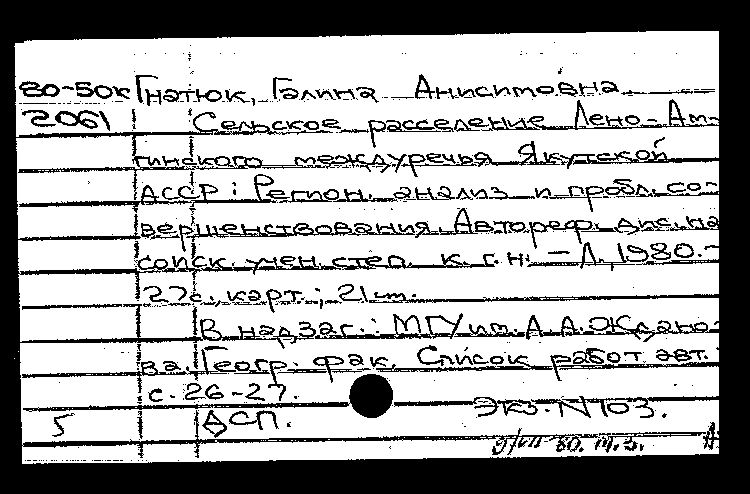 80-50к Гнатюк, Галина Анисимовна
2061 Сельское расселение Лено-Ам-
гинского междуречья Якутской
АССР: Регион. анализ и пробл. со-
вершенствования. Автореф. дис. на
соиск. учен. степ. к. г. н. - Л., 1980. -
27с., карт.; 21 см.
В надзаг.: МГУ им. А.А. Ждано-
ва. Геогр. фак. Список работ авт.:
с. 26-27.
5 ДСП. Экз. N 103.
80. т.з.